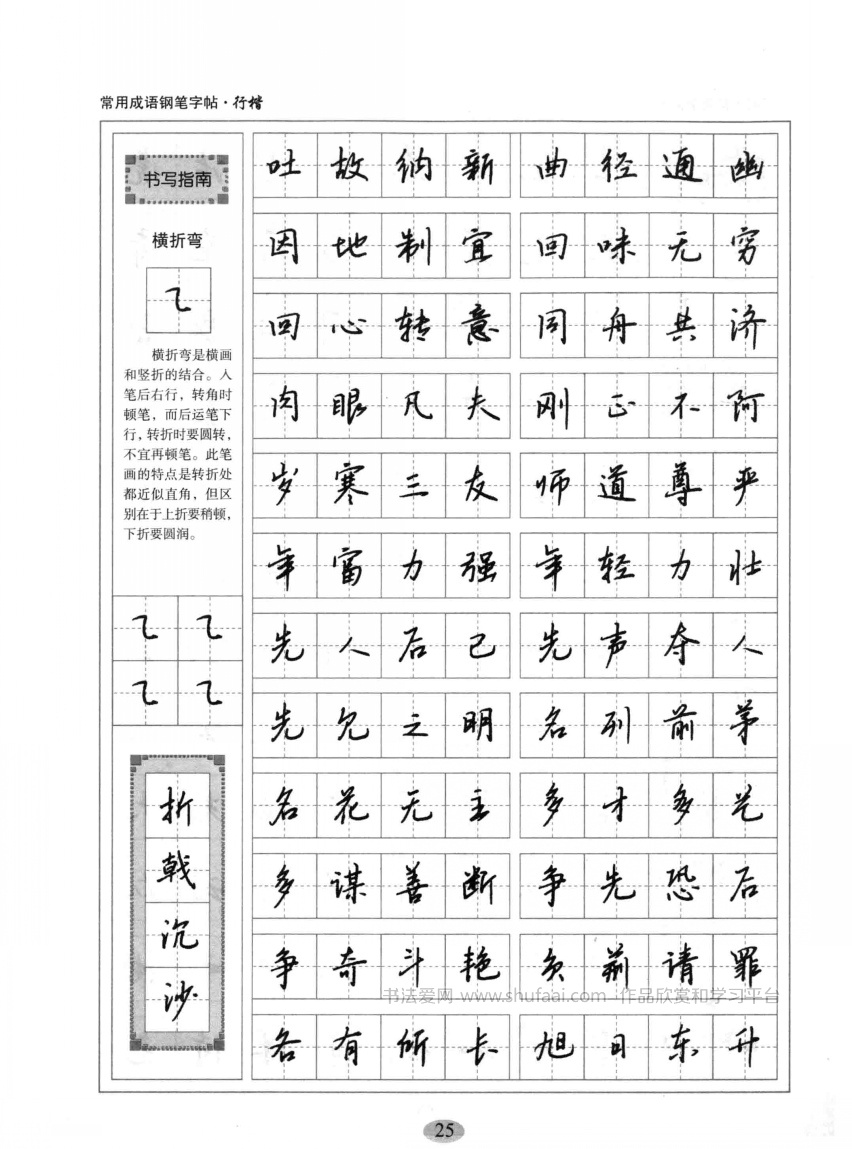 常用成语钢笔字帖·行楷
书写指南
横折弯
㇍
横折弯是横画
和竖折的结合。入
笔后右行，转角时
顿笔，而后运笔下
行，转折时要圆转，
不宜再顿笔。此笔
画的特点是转折处
都近似直角，但区
别在于上折要稍顿，
下折要圆润。
㇍ ㇍
㇍ ㇍
折
戟
沉
沙
吐故纳新 曲径通幽
因地制宜 回味无穷
回心转意 同舟共济
肉眼凡夫 刚正不阿
岁寒三友 师道尊严
年富力强 年轻力壮
先人后己 先声夺人
先见之明 名列前茅
名花无主 多才多艺
多谋善断 争先恐后
争奇斗艳 负荆请罪
书法爱网 www.shufaai.com 作品欣赏和学习平台
各有所长 旭日东升
25